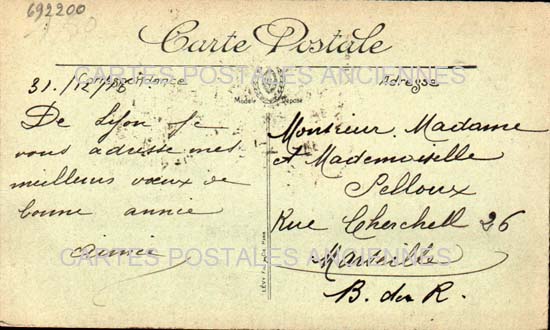 692200
Carte Postale
Correspondance
Adresse
CARTES POSTALES ANCIENNES
31./12/18
Modèle Déposé
De Lyon je
vous adresse mes
meilleurs vœux de
bonne année
Aimée
Monsieur, Madame
et Mademoiselle
Pelloux
Rue Cherchell 26
Marseille
B. du R.
CARTES POSTALES ANCIENNES
LÉVY